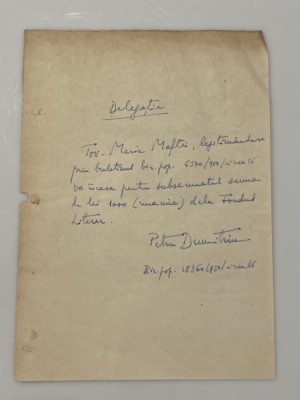 Delegație
Tov. Maria Maftei, legitimându-se
prin buletinul bir. pop. 6580/950/circ. 16
va încasa pentru subsemnatul suma
de lei 1000 (una mie) dela Fondul
Literar.
Petru Dumitriu
Bir. pop. 18360/950/circ. 16